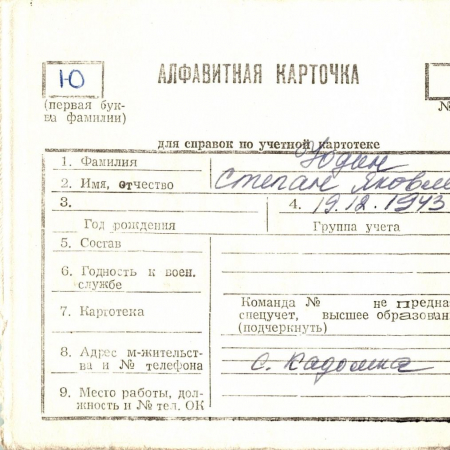 Ю
АЛФАВИТНАЯ КАРТОЧКА
(первая бук-
ва фамилии)
№
для справок по учетной картотеке
1. Фамилия Юдин
2. Имя, отчество Степан Яковле
3. 4. 19.12.1943
Год рождения Группа учета
5. Состав
6. Годность к воен.
службе
Команда № не предна
7. Картотека спецучет, высшее образован
(подчеркнуть)
8. Адрес м-жительст-
ва и № телефона с. Кадомка
9. Место работы, дол-
жность и № тел. ОК